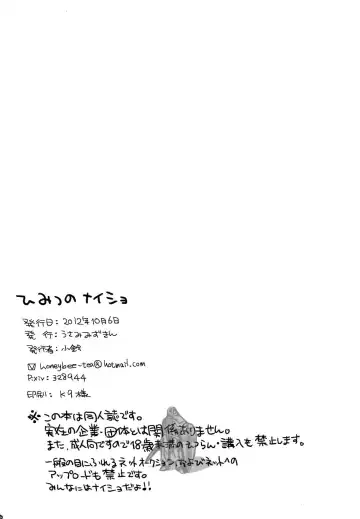 ひみつの ナイショ
発行日：2012年10月6日
発 行：うさみみずきん
発行者：小鈴
✉ honeybee-tea@hotmail.com
Pixiv: 328944
印刷： K9様
※この本は同人誌です。
実在の企業・団体とは関係ありません。
また、成人向ですので18歳未満のえつらん・購入も禁止します。
一般の目にふれるネットオークション、およびネットへの
アップロードも禁止です。
みんなにはナイショだよ!!